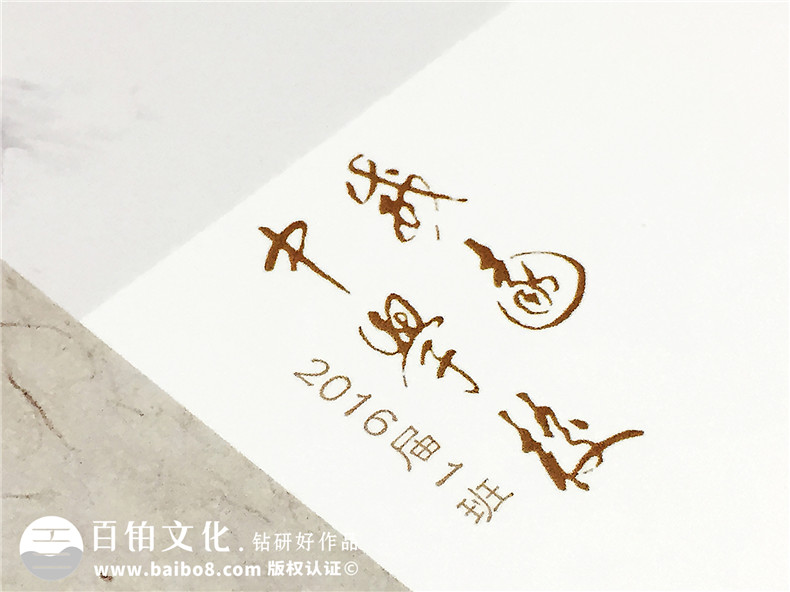 我的
中学
2016届1班
百铂文化.钻研好作品
www.baibo8.com 版权认证©